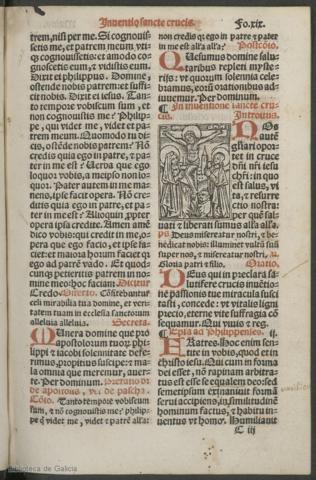 Inventiõ sancte crucis. Fo.xix.
trem, nisi per me. Si cognouis-
setis me, et patrem meum vti-
q; cognouissetis: et amodo co-
gnoscetis eum, et vidistis eum.
Dixit ei philippus. Domine,
ostende nobis patrem: et suffi-
cit nobis. Dixit ei iesus. Tan-
to tempore vobiscum sum, et
non cognouistis me? Philip-
pe, qui videt me, videt et pa-
trem meum. Quomodo tu di-
cis, ostẽde nobis patrem? Nõ
credis quia ego in patre, et pa-
ter in me est? Uerba que ego
loquor vobis, a meipso non lo-
quor. Pater autem in me ma-
nens, ipse facit opera. Nõ cre-
ditis quia ego in patre, et pa-
ter in me est? Alioquin, ppter
opera ipsa credite. Amen amẽ
dico vobis: qui credit in me, o-
pera que ego facio, et ipse fa-
ciet: et maiora horum faciet: qz
ego ad patrẽ vado. Et quod-
cunq; petieritis patrem in no-
mine meo: hoc faciam. Dicitur
Credo. Offerto. Cõfitebuntur
celi mirabilia tua domine, et ve-
ritatem tuam in ecclesia sanctorum
alleluia alleluia. Secreta.
MUnera domine que pro
apostolorum tuorũ phi-
lippi et iacobi solennitate defe-
rimus, propitius suscipe: et ma-
la omnia que meremur, auer-
te. Per dominum.
Cõio. Tanto tempore vobiscum
sum, et nõ cognouistis me? philip-
pe q videt me, videt et patrẽ al'a:
non credis qz ego in patre et pater
in me est al'a al'a? Postcõio.
QUesumus domine salu-
taribus repleti myste-
riis: vt quorum solennia cele-
bramus, eorũ orationibus ad-
iuuemur. Per dominum.
In inuentione sancte cru-
cis. Introitus.
NOs autẽ
gliari opor-
tet in cruce
dñi nr̃i iesu
chr̃i: in quo
est salus, vi
ta, et resur-
rectio nostra:
per quẽ sal-
uati et liberati sumus al'a al'a.
ps Deus misereatur nostri, et be-
nedicat nobis: illuminet vultũ suũ
super nos, et misereatur nostri.
Gloria patri et filio. Oratio.
DEus qui in preclara sa-
lutifere crucis inuẽtio-
ne passionis tue miracula susci
tasti, concede: vt vitalis ligni
precio, eterne vite suffragia cõ
sequamur. Qui viuis et reg.
Epl'a ad philippenses. ij.
FRatres. Hoc enim sen-
tite in vobis, quod et in
christo iesu. Qui cum in forma
dei esset, nõ rapinam arbitra-
tus est esse se equalem deo: sed
semetipsum exinaniuit formã
serui accipiens, in similitudinẽ
hominum factus, et habitu in-
uentus vt homo. Humiliauit
C iij
Biblioteca de Galicia